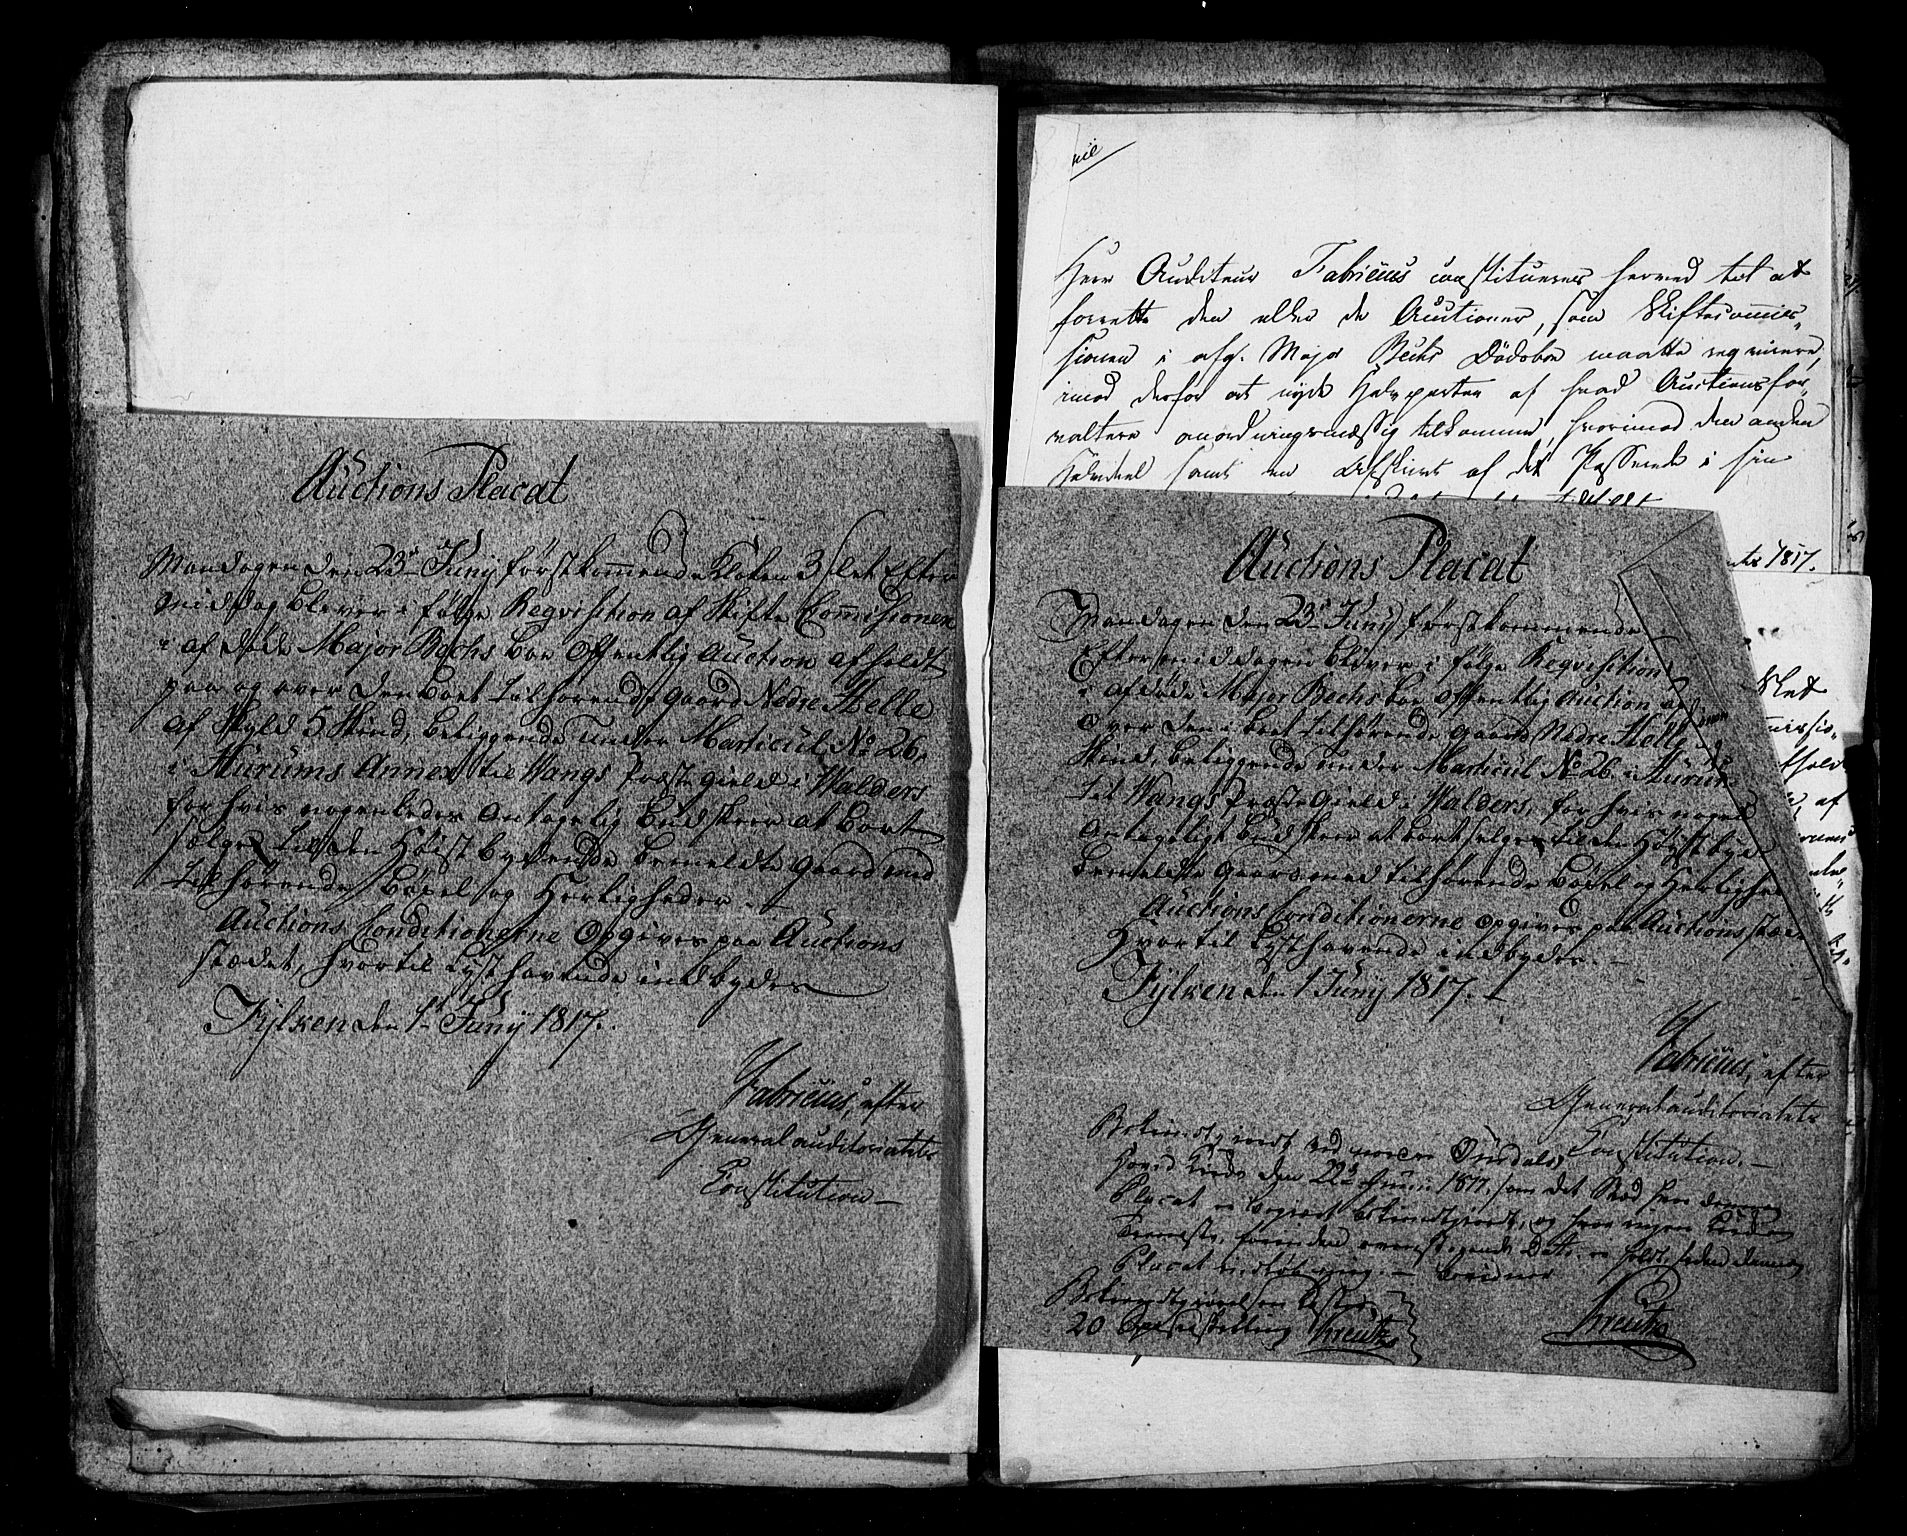 Auctions Placat
Mandagen den 23de Junij førstkommende Klokken 3 slet Efter
middag bliver i følge Reqvisition af Skifte Commisionen
i afdøde Major Bechs Boe Offentlig Auction afholdt
paa og over den Boet tilhørende gaard Nedre Helle
af Skyld 5 Skind, beliggende under Marticul No 26,
i Hurums Annex til Wangs Præstegield i Walders
for hvis nogenledes Antagelig Bud skeer at bort
sælges til den Høistbydende bemeldte gaard med
tilhørende Bøxel og Herligheder.
Auctions Conditionerne Opgives paa Auctions
stædet, hvortil Lysthavende indbydes
Fylken den 1te Junij 1817.
Fabricius, efter
Generalauditoriatets
Constitution
Herr Auditeur Fabricius constitueres herved til at
forrette den eller de Auctioner, som Skiftecommis-
sionen i afg. Major Bechs Dødsboe maatte requirere,
imod derfor at nyde Halvparten af hvad Auctionsfor-
valtere anordningsmæssig tilkommer, hvorimod den anden
Halvdeel samt en Afskrivt af det Passerede i sin
1817.
Auctions Placat
Mandagen den 23de Junij førstkommende
Eftermiddagen bliver i følge Reqvisition
i afdøde Major Bechs boe offentlig Auction
over den i boet tilhørende gaard Nedre Helle
Skind, beliggende under Marticul No 26. i Hurum
til Wangs Præstegield i Walders, for hvis nogen
Antageligt bud skeer at bortselges til den Høystbyde
bemeldte gaard med tilhørende bøxel og Herlighed
Auctions Conditionerne opgives paa Auctionsstæd
Hvortil Lysthavende indbydes.
Fylken den 1 Junij 1817.
Fabricius, efter
Generalauditoriatets
Constitution.
Bekiendtgiordt ved
Kirke den 22de Junii 1817, som det Sted hvor denne
Placat er begiert bekiendtgiort, og hvor ingen Kirke
Tieneste, forinden ovenstaaende Dato er holdt, siden denne
Placat
Bekiendtgiørelsen koster
20 Kreutz
Kreutz